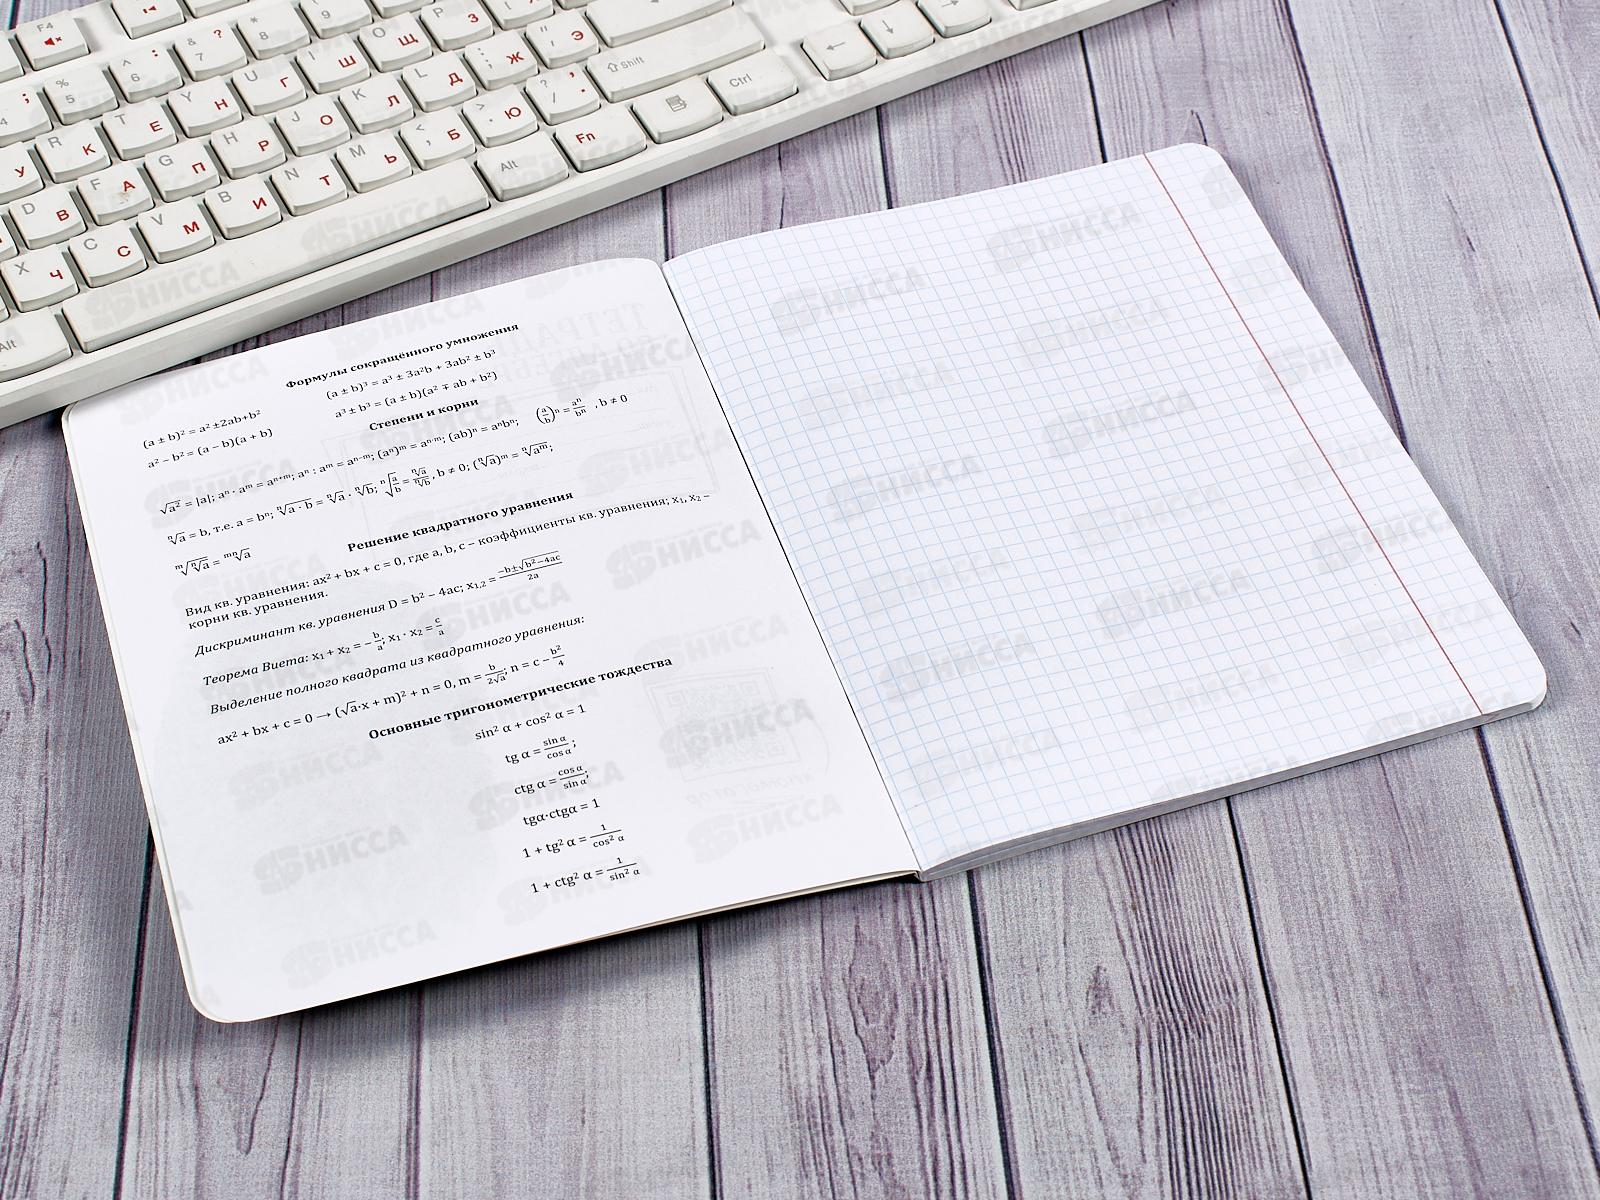 Формулы сокращённого умножения
(a ± b)² = a² ±2ab+b²
(a ± b)³ = a³ ± 3a²b + 3ab² ± b³
a² − b² = (a − b)(a + b)
a³ ± b³ = (a ± b)(a² ∓ ab + b²)
Степени и корни
√a² = |a|; aⁿ · aᵐ = aⁿ⁺ᵐ; aⁿ : aᵐ = aⁿ⁻ᵐ; (aⁿ)ᵐ = aⁿ·ᵐ; (ab)ⁿ = aⁿbⁿ; (a/b)ⁿ = aⁿ/bⁿ , b ≠ 0
ⁿ√a = b, т.е. a = bⁿ; ⁿ√(a · b) = ⁿ√a · ⁿ√b; ⁿ√(a/b) = ⁿ√a/ⁿ√b, b ≠ 0; (ⁿ√a)ᵐ = ⁿ√aᵐ;
ᵐ√(ⁿ√a) = ᵐⁿ√a
Решение квадратного уравнения
Вид кв. уравнения: ax² + bx + c = 0, где a, b, c − коэффициенты кв. уравнения; x₁, x₂ −
корни кв. уравнения.
Дискриминант кв. уравнения D = b² − 4ac; x₁,₂ = (−b±√(b²−4ac))/2a
Теорема Виета: x₁ + x₂ = −b/a; x₁ · x₂ = c/a
Выделение полного квадрата из квадратного уравнения:
ax² + bx + c = 0 → (√a·x + m)² + n = 0, m = b/(2√a); n = c − b²/4
Основные тригонометрические тождества
sin² α + cos² α = 1
tg α = sin α/cos α;
ctg α = cos α/sin α;
tgα·ctgα = 1
1 + tg² α = 1/cos² α
1 + ctg² α = 1/sin² α